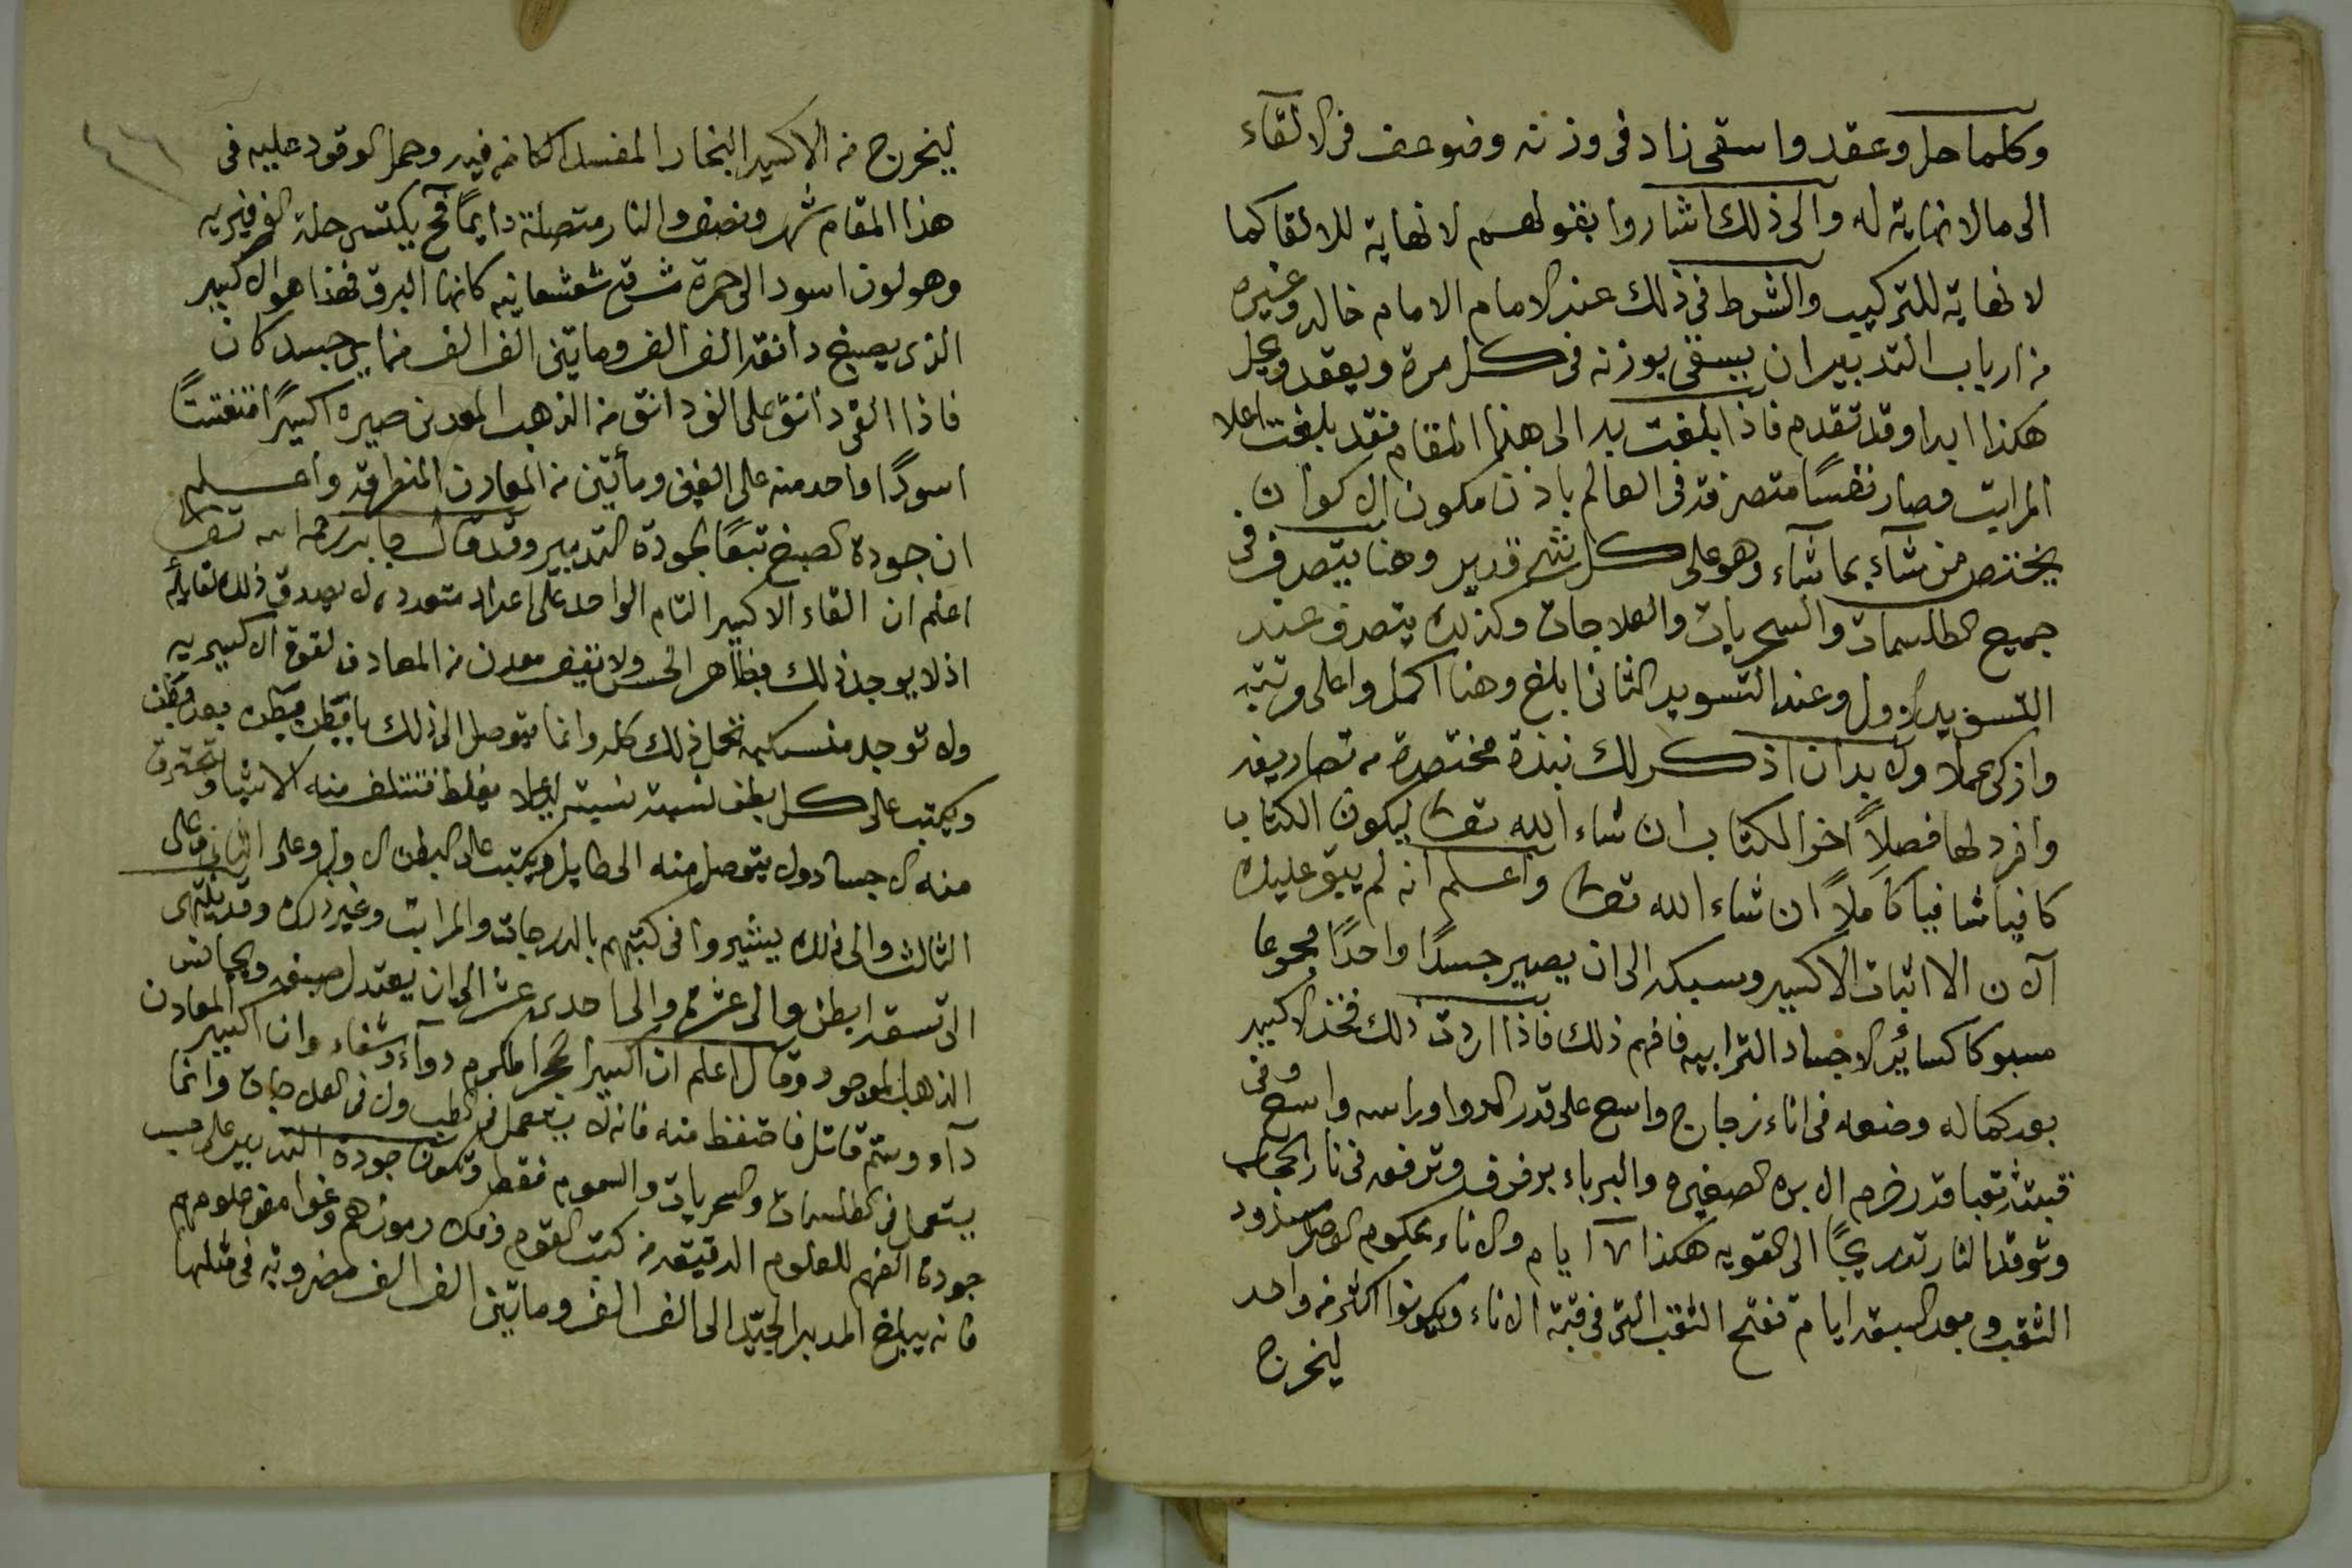 وكلما حل وعقد واسقى زاد فى وزنه وضوعف فى الالقآء
الى مالا نهاية له والى ذلك اشاروا بقولهم لا نهاية للالقا كما
لا نهاية للتركيب والشرط فى ذلك عند الامام الامام خالد وغيره
من ارباب التدبير ان يسقى بوزنه فى كل مرة ويعقد ويحل
هكذا ابدا وقد تقدم فاذا بلغت به الى هذا المقام فقد بلغت اعلا
المراتب وصار نفسًا متصرفة فى العالم باذن مكون الاكوان
يختص من شآء بما شآء وهو على كل شئ قدير وهنا يتصرف فى
جميع الطلسمات والسحريات والعلاجات وكذلك يتصرف عند
التسويد الاول وعند التسويد الثانى ابلغ وهنا اكمل واعلى مرتبة
وازكى عملا ولا بد ان اذكر لك نبذة مختصرة من تصاريفه
وافرد لها فصلاً اخر الكتاب ان شاء الله تعالى ليكون الكتاب
كافيا شافيا كاملاً ان شاء الله تعالى واعلم انه لم يبق عليك
الان الا اثبات الاكسير وسبكه الى ان يصير جسدًا واحدًا مجموعا
مسبوكا كسائر الاجساد الترابيه فافهم ذلك فاذا اردت ذلك فخذ الاكسير
بعد كماله وضعه فى اناء زجاج واسع على قدر الدوا وراسه واسع وفى
قبته ثقبا قدر خرم الابره الصغيره والبرباء برفرف وترفعه فى نار
وتوقد النار تدريجًا الى القويه هكذا ٧ ايام والاناء محكوم الوصل مسدود
الثقب وبعد السبعه ايام تفتح الثقب التى فى قبة الاناء ويكونوا اكثر من واحد
ليخرج
ليخرج من الاكسير البخار المفسد الكامن فيه وحمل الوقود عليه فى
هذا المقام شهر ونصف والنار متصلة دايمًا فح يكتسى حلة الفرفيريه
وهو لون اسود الى حمرة مشرقة شعشعانيه كانها البرق فهذا هو الاكسير
الذى يصبغ دانقه الف الف وماتين الف الف من اى جسد كان
فاذا القى دانق على الف دانق من الذهب المعدنى صيره اكسيرًا متفتتًا
اسودًا واحد منه على الفين ومأتين من المعادن المنطرقة واعلم
ان جودة الصبغ تبعًا لجودة التدبير وقد قال جابر رحمه الله تعالى
اعلم ان القاء الاكسير التام الواحد على اعداد متعدده لا يصدق ذلك
اذ لا يوجد ذلك بظاهر الحس ولا نفيض معدن من المعادن لقوة الاكسيريه
ولا توجد تحمل ذلك كله وانما يتوصل الى ذلك بابطن بطن بعد بطن
ويكتب على كل بطن نسبته لئلا يغلط فتتلف منه الاشيا وتحترق
منه الاجساد ولا يتوصل منه الى طايل ويكتب على البطن الاول وعلى الثانى وعلى
الثالث والى ذلك يشيروا فى كتبهم بالدرجات والمراتب وغير ذلك وقد ينتهى
الى تسعه ابطن والى عشرة والى احدى عشر الى ان يعتدل صبغه ويجانس
الذهب الموجود وقال اعلم ان اكسير الحجر المكرم دوآء وشفاء وان اكسير المعادن
دآء وسم قاتل فاحتفظ منه فانه لا يستعمل فى الطب ولا فى العلاجات وانما
يستعمل فى الطلسمات والسحريات والسموم فقط وتكون جودة التدبير على حسب
جودة الفهم للعلوم الدقيقه من كتب القوم وفك رموزهم وغوامض علومهم
فانه يبلغ المدبر الجيد الى الف الف وماتين الف الف مضروبة فى مثلها